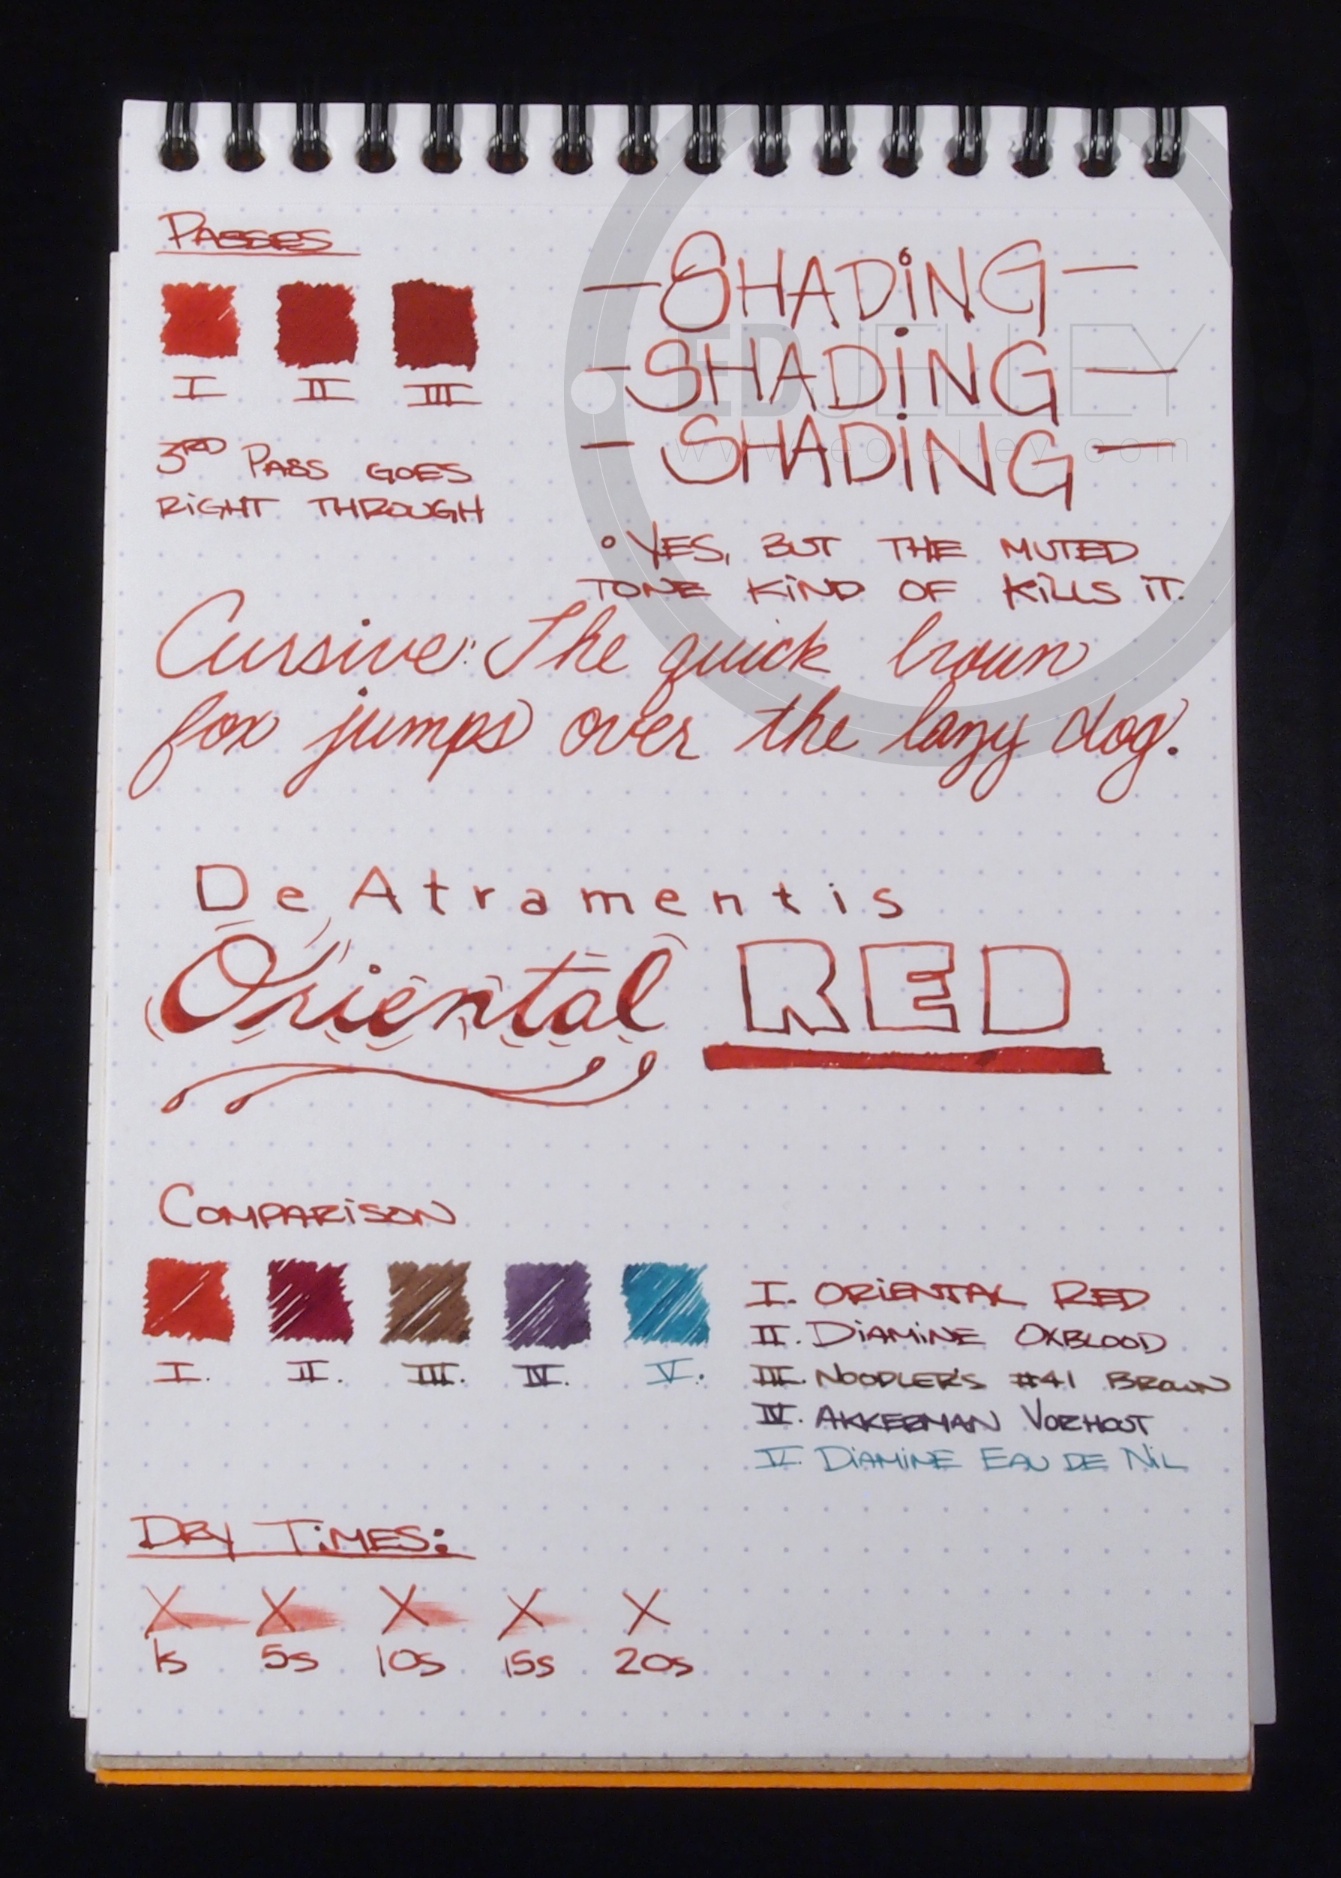 PASSES
I II III
3RD PASS GOES
RIGHT THROUGH
—SHADING—
—SHADING—
—SHADING—
• YES, BUT THE MUTED
TONE KIND OF KILLS IT.
ED JELLEY
www.edjelley.com
Cursive: The quick brown
fox jumps over the lazy dog.
De Atramentis
Oriental RED
COMPARISON
I. II. III. IV. V.
I. ORIENTAL RED
II. DIAMINE OXBLOOD
III. NOODLER'S #41 BROWN
IV. AKKERMAN VORHOUT
V. DIAMINE EAU DE NIL
DRY TIMES:
X X X X X
1s 5s 10s 15s 20s